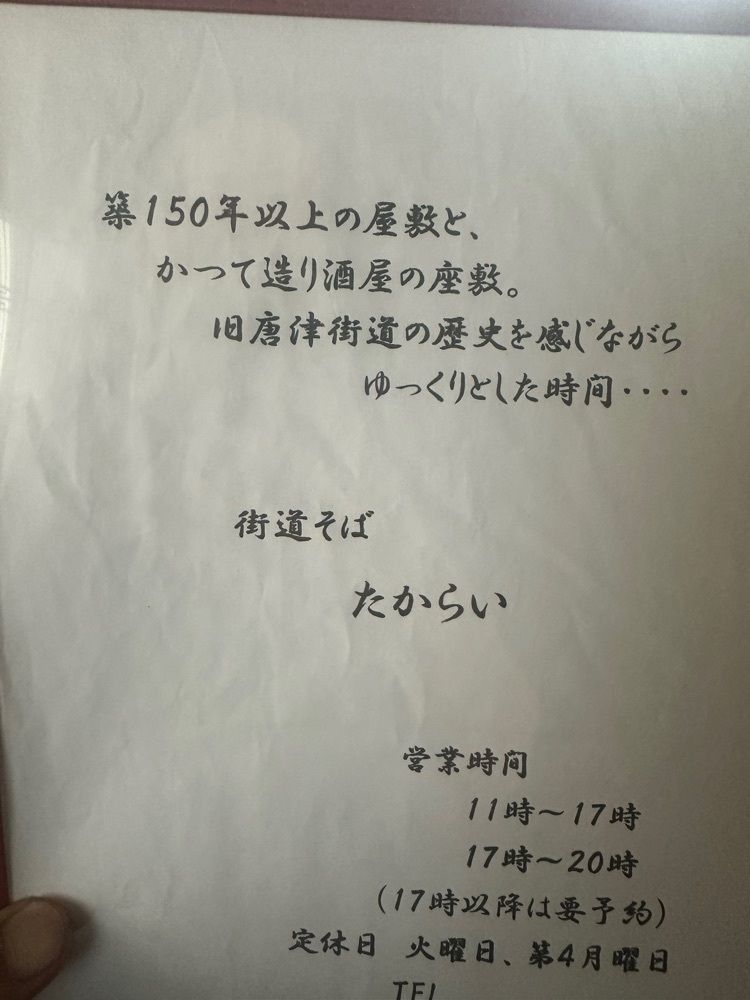 築150年以上の屋敷と、
かつて造り酒屋の座敷。
旧唐津街道の歴史を感じながら
ゆっくりとした時間・・・・
街道そば
たからい
営業時間
11時～17時
17時～20時
(17時以降は要予約)
定休日 火曜日、第4月曜日
TEL